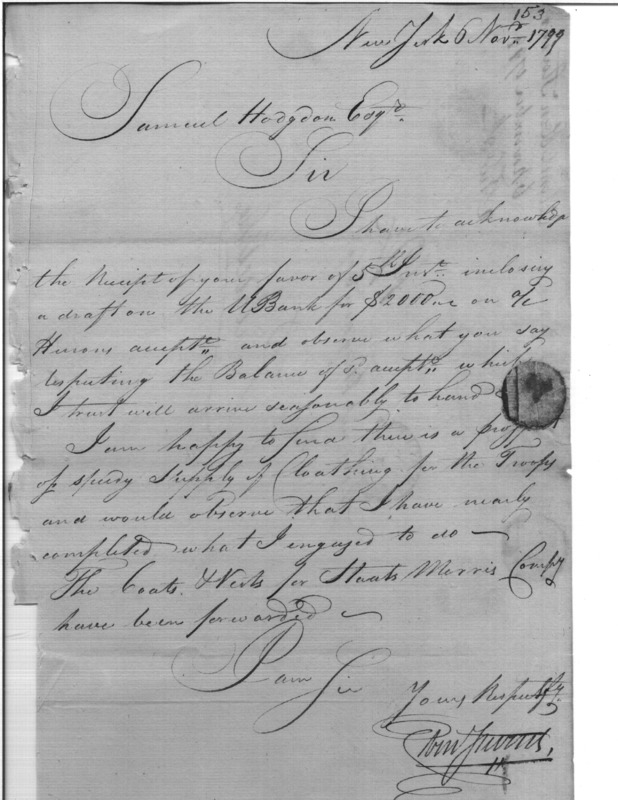 153
New York 6 Novr. 1799
Samuel Hodgdon Esqr.
Sir
I have to acknowledge
the Receipt of your favor of 5th Inst. inclosing
a draft on the UBank for $2000 on a/c
Hurons accepte. and observe what you say
respecting the Balance of sd. accepte. which
I trust will arrive seasonably to hand
I am happy to find there is a prospect
of speedy Supply of Cloathing for the Troops
and would observe that I have nearly
completed what I engaged to do —
The Coats & Vests for Staats Morris Compy
have been forwarded —
I am Sir
Yours Respectfy.